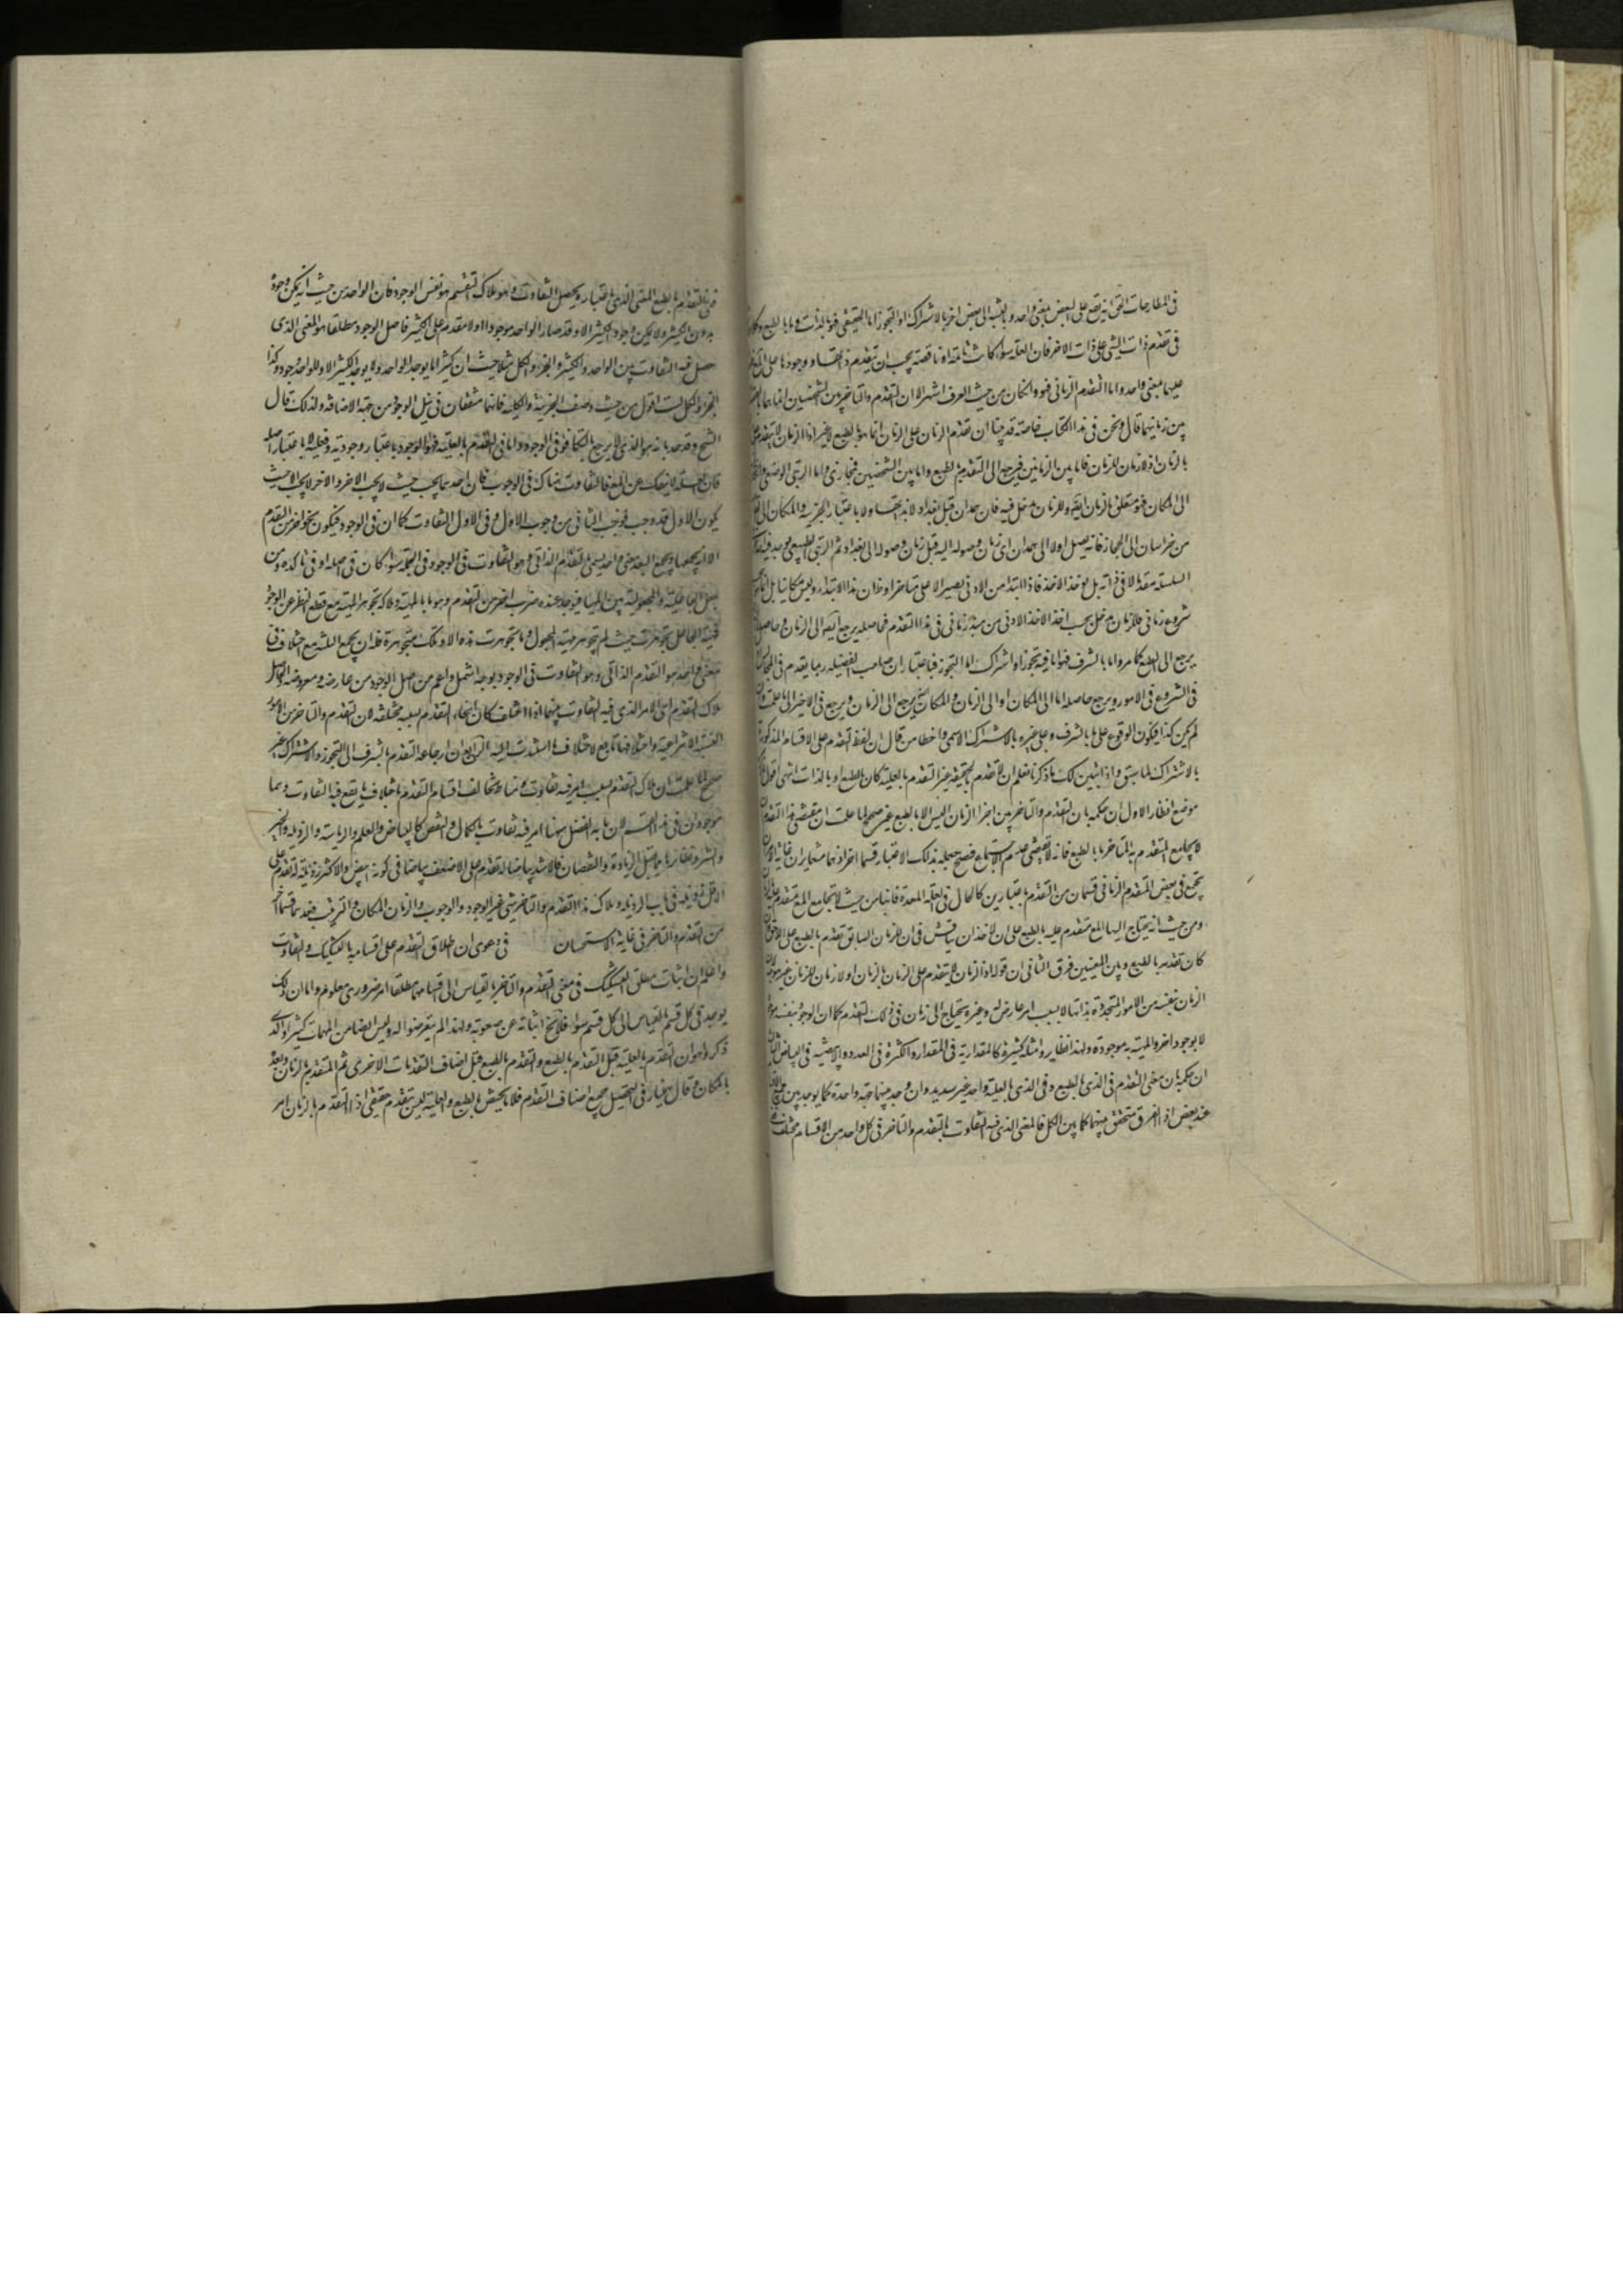 في المطارحات الحق انه يقع على البعض بمعنى واحد و بالنسبة الى بعض اخر بالاشتراك او التجوز اما الحقيقي فهو بالذات و ما بالطبع وكلا
في تقدم ذات الشي على ذات الاخر فان العلة سواء كانت تامة او ناقصة يجب ان يتقدم ذاتها و وجودها على المعلول
عليهما بمعنى واحد واما التقدم الزماني فهو وان كان من حيث العرف اشهر الا ان التقدم والتاخر بين الشخصين انما هما بالقصد
بين زمانيهما قال ونحن في هذا الكتاب خاصة قد بينا ان تقدم الزمان على الزمان انما هو بالطبع لا غير اذ الزمان لا يتقدم على
بالزمان اذ لا زمان للزمان فاما بين الزمانين فيرجع الى التقدم بالطبع واما بين الشخصين فمجازي واما الرتبي الوضعي وان
الى المكان فهو متعلق بالزمان ايضا وللزمان مدخل فيه فان همدان قبل بغداد لا بذاتها ولا باعتبار الحيز والمكان بل
من خراسان الى الحجاز فانه يصل اولا الى همدان اي زمان وصوله اليه قبل زمان وصوله الى بغداد ثم الرتبي الطبيعي يوجد فيه
السلسلة مقدما لا في ذاته بل بوخذ الاخذ فاذا ابتدا من الادنى يصير الاعلى متاخرا وظان هذا الابتداء وليس مكانيا بل انما
شروع زماني فللزمان مدخل بحسب اخذ الاخذ الادنى من مبدا زماني في هذا التقدم فحاصله يرجع ايضا الى الزمان وحاصل
يرجع الى الطبع كما مر واما بالشرف فهو اما فيه تجوز او اشتراك اما التجوز فباعتبار ان صاحب الفضيلة ربما يقدم في المجالس
في الشروع في الامور ويرجع حاصله اما الى المكان او الى الزمان والمكان ايضا يرجع الى الزمان ويرجع في الاخير الى ما علمت وان
لم يكن كذا فيكون الوقوع على ما بالشرف وعلى غيره بالاشتراك الاسمي واخطا من قال ان لفظ التقدم على الاقسام المذكورة
بالاشتراك لما سبق واذ تبين لك ما ذكرنا فعلم ان لا تقدم بالحقيقة غير التقدم بالعلية كان بالطبع او بالذات انتهى اقول
موضع انظار الاول ان حكمه بان التقدم والتاخر بين اجزا الزمان ليس الا بالطبع غير صحيح لما علمت ان مقتضى هذا التقدم
لا يجامع المتقدم به المتاخر ما بالطبع فانه لا يقتضي عدم الاجتماع فصح جعله بذلك الاعتبار قسما اخر اذ هما متغايران غاية الامر
يجتمع في بعض المتقدم الزماني قسمان من التقدم باعتبارين كالحال في العلة المعدة فانها من حيث لا تجامع المع متقدم عليه بالزمان
ومن حيث انه يحتاج اليها المع متقدم عليه بالطبع على ان لاحد ان يناقش في ان الزمان السابق تقدم بالطبع على اللاحق
كان تقدمه بالطبع وبين المعنيين فرق الثاني ان قوله اذ الزمان لا يتقدم على الزمان بالزمان اذ لا زمان للزمان غير موجه لان
الزمان بنفسه من الامور المتجددة بذاتها لا بسبب امر عارض له وغيره يحتاج الى زمان في ذلك التقدم كما ان الوجود بنفسه موجود
لا بوجود اخر والمهية به موجودة ولهذا نظاير وامثلة كثيرة كالمقدارية في المقدار والكثرة في العدد والابيضية في البياض الثالث
ان حكمه بان معنى التقدم في الذي بالطبع وفي الذي بالعلية واحد غير سديد وان وجد بينهما جهة واحدة كما يوجد بين جميع الاقسام
عند بعض اذ الفرق متحقق بينهما كما بين الكل فالمعنى الذي فيه التفاوت بالتقدم والتاخر في كل واحد من الاقسام مختلف
ففي التقدم بالطبع المعنى الذي باعتباره يحصل التفاوت وهو ملاك التقسم هو نفس الوجود فان الواحد من حيث انه يمكن وجوده
بدون الكثير ولا يمكن وجود الكثير الا وقد صار الواحد موجودا اولا مقدم على الكثير فاصل الوجود مطلقا هو المعنى الذي
حصل فيه التفاوت بين الواحد والكثير والجزء والكل مثلا حيث ان كثيرا ما يوجد الواحد ولا يوجد الكثير الا وللواحد وجود وكذا
الجزء والكل لست اقول من حيث وصف الجزئية والكلية فانهما متفقان في نيل الوجود من جهة الاضافة ولذلك قال
الشيخ وقد حد بانه هو الذي لا يرجع بالتكافؤ في الوجود واما في التقدم بالعلية فهو الوجود باعتبار وجوبه وفعليته لا باعتبار اصله
فان العلة لا ينفك عن المع فالتفاوت هناك في الوجوب فان احدهما يجب حيث لا يجب الاخر والاخر لا يجب الا حيث
يكون الاول قد وجب فوجب الثاني من وجوب الاول وفي الاول التفاوت كما ان في الوجود فيكون نحوا اخر من التقدم
الا انه يجمعها ويجمع البعد معنى واحد يسمى التقدم الذاتي وهو التفاوت في الوجود في الجملة سواء كان في اصله او في تاكده ومن
يجعل الجاعلية والمجعولية بين المهيات فيوجد عنده ضرب اخر من التقدم وهو ما بالمهية وملاكه تجوهر المهية مع قطع النظر عن الوجود
فمهية الجاعل تجوهرت حيث لم تجوهر مهية المجعول وما تجوهرت هذه الا وتلك متجوهرة فله ان يجمع الثلثة مع اختلافها في
معنى واحد هو التقدم الذاتي وهو التفاوت في الوجود بوجه اشمل واعم من اصل الوجود من عارضه ومعروضه والحاصل
ملاك التقدم اي الامر الذي فيه التفاوت بينهما اذا اختلف كان انحاء التقدم بسببه مختلفة لان التقدم والتاخر من الامور
النسبية الانتزاعية واختلافها تابع لاختلاف ما استندت اليه الرابع ان ارجاعه التقدم بالشرف الى التجوز والاشتراك غير
صحيح لما علمت ان ملاك التقدم بسبب امر فيه تفاوت وتخالف اقسام التقدم باختلاف ما يقع فيه التفاوت وهما
موجودان في هذا القسم لان ما به الفضل ههنا امر فيه تفاوت بالكمال والنقص كالبياض والعلم والرياسة والرذيلة والخير
والشر ونظايرها مما يقبل الزيادة والنقصان فللاشد بياضا له تقدم على الاضعف بياضا في كونه ابيض والاكثر رذيلة له تقدم على
الاقل رذيلة في باب الرذيلة وملاك هذا التقدم والتاخر شي غير الوجود والوجوب والزمان والمكان والترتيب فعد هما قسما اخر
من التقدم والتاخر في غاية الاستحسان في دعوى ان اطلاق التقدم على اقسامه بالتشكيك والتفاوت
واعلم ان اثبات مطلق التشكيك في معنى التقدم والتاخر بالقياس الى اقسامهما مطلقا امر ضروري معلوم واما ان ذلك
يوجد في كل قسم بالقياس الى كل قسم سواه فلا يخ اثباته عن صعوبة ولهذا لم يتعرضوا له وليس ايضا من المهمات كثيرا والذي
ذكروا هو ان التقدم بالعلية قبل التقدم بالطبع والتقدم بالطبع قبل اصناف التقدمات الاخرى ثم المتقدم بالزمان وبعده
بالمكان وقال بهمنيار في التحصيل جميع اصناف التقدم فلا يحيش بالطبع والعلية ليس بتقدم حقيقي اذ التقدم بالزمان امر